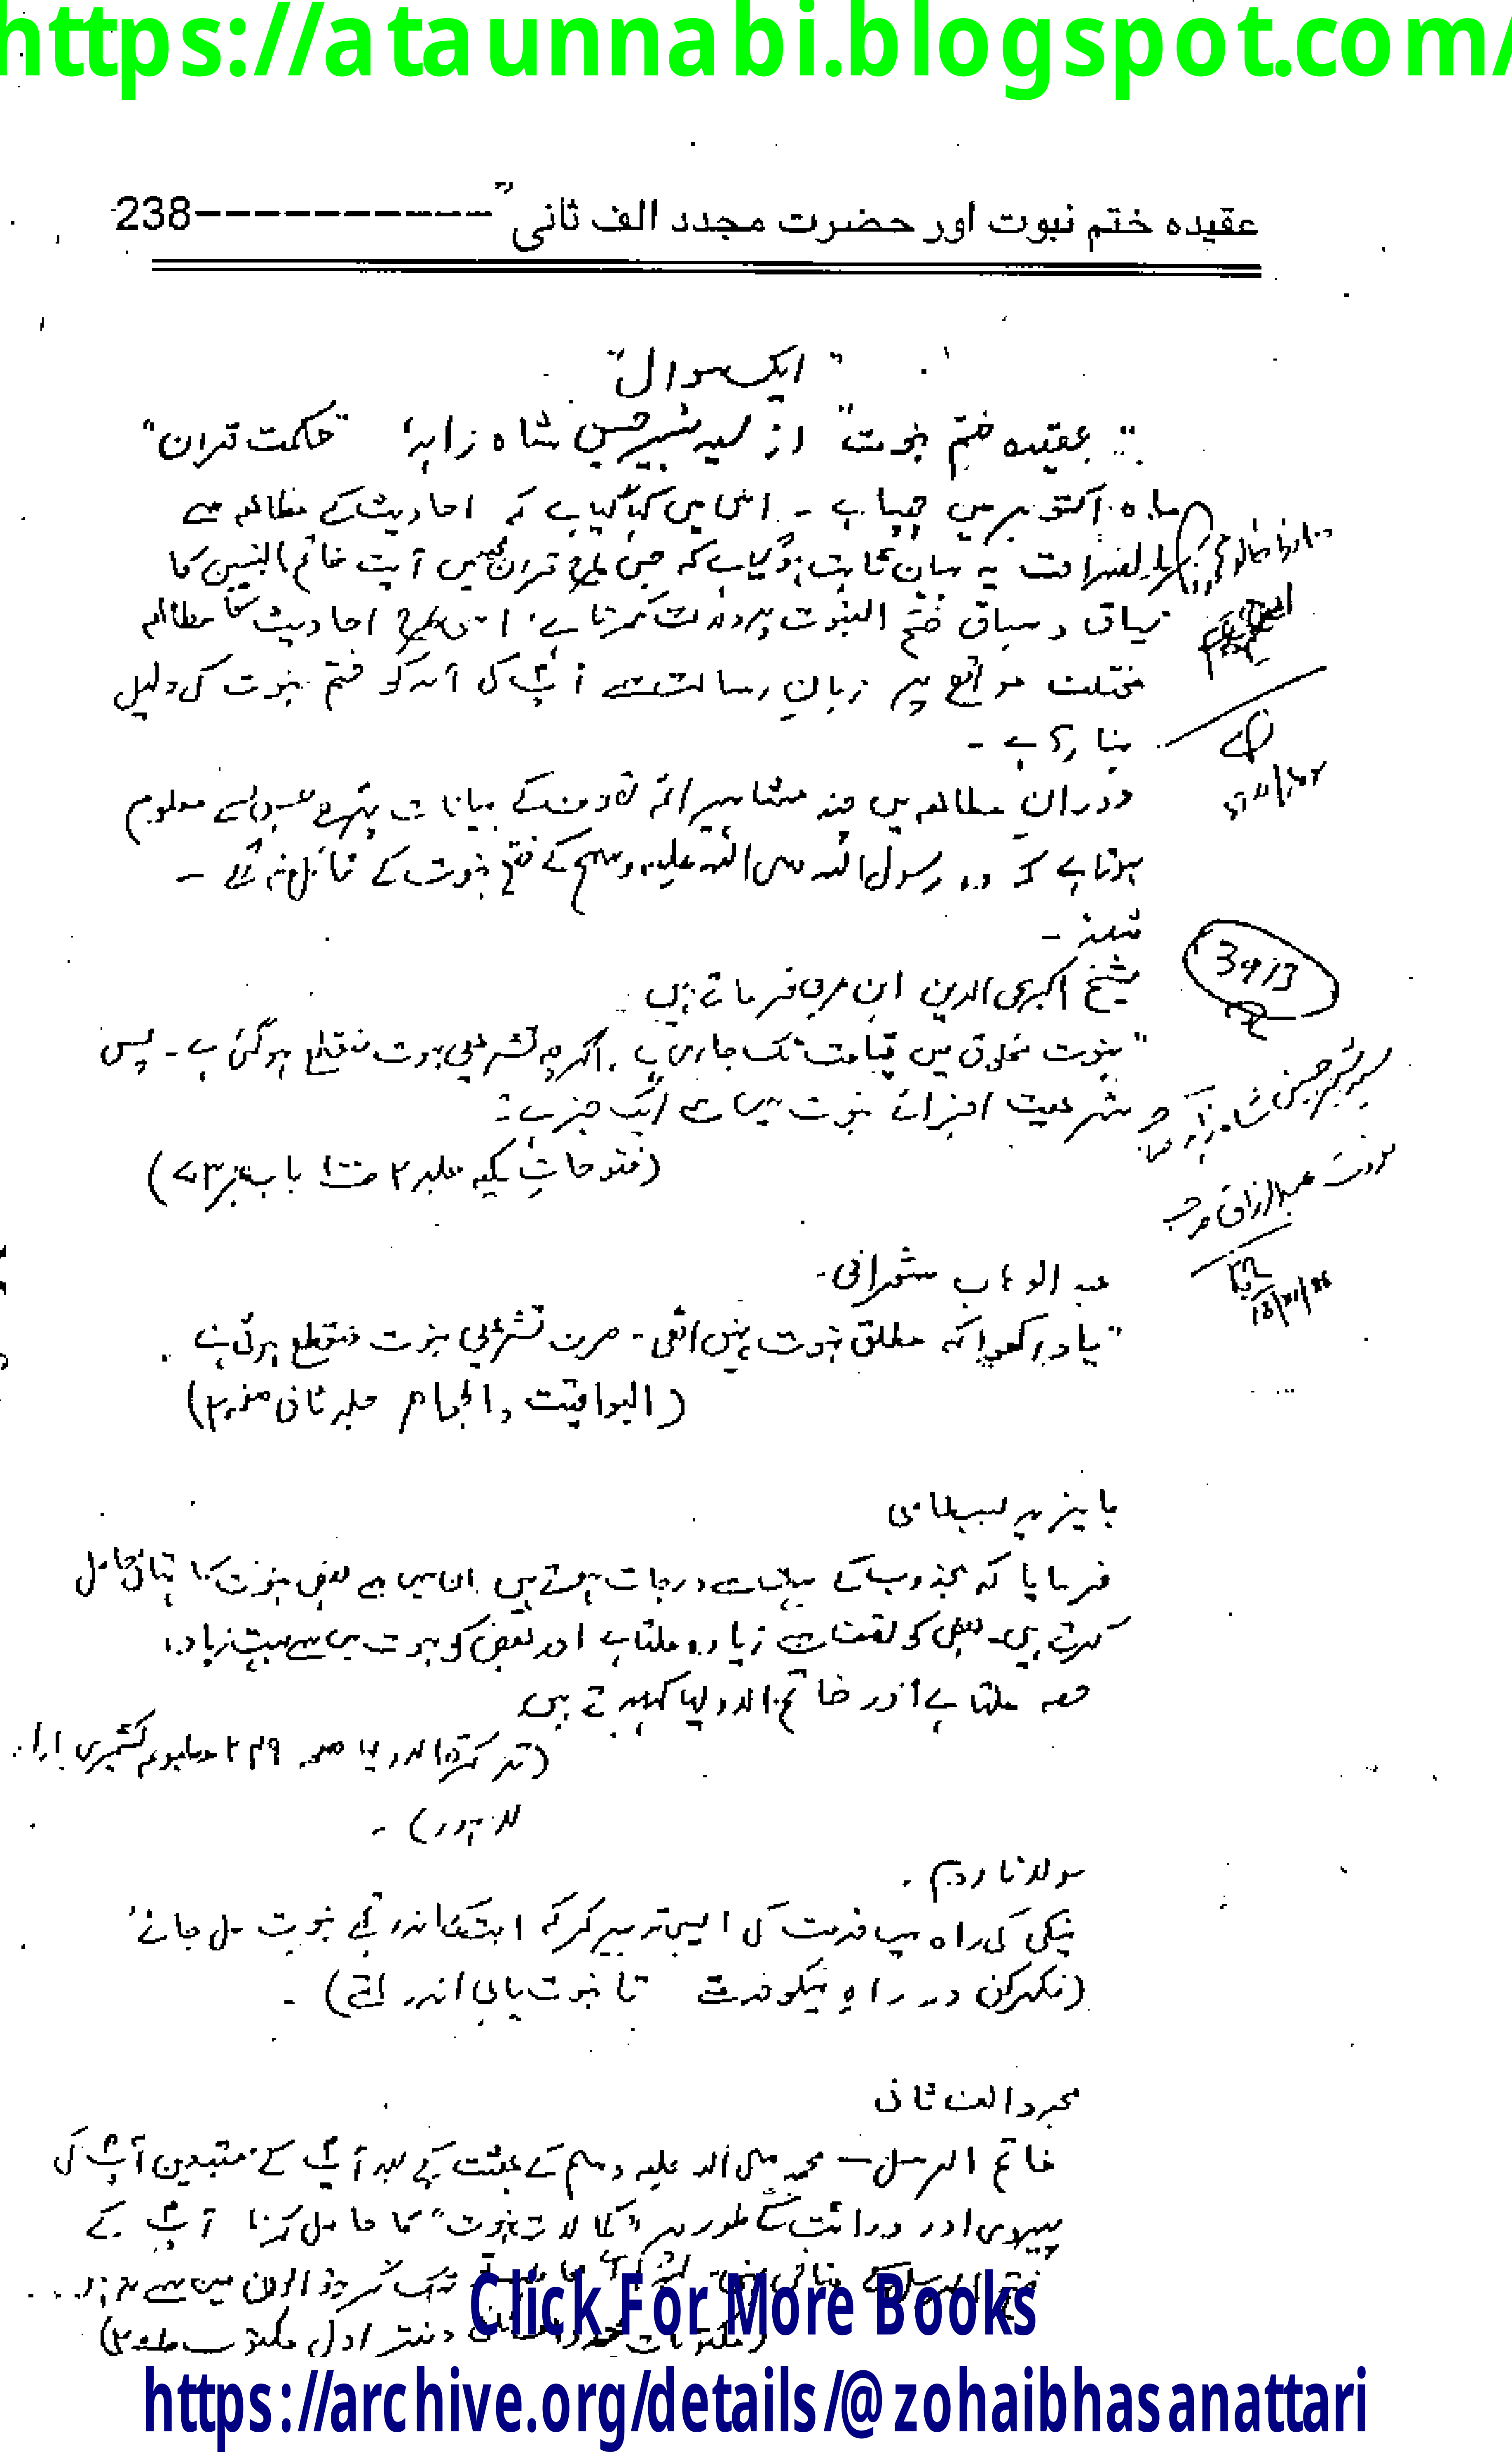 https://ataunnabi.blogspot.com/
عقیدہ ختم نبوت اور حضرت مجدد الف ثانیؒ -----------238
"ایک سوال"
"عقیدہ ختم نبوت" از سید شبیر حسین شاہ زاہد، "حکمت قرآن"
ماہ اکتوبر میں چھپا ہے - اس میں کہا گیا ہے کہ احادیث کے مطالعہ سے
یہ بیان ثابت ہو گیا ہے کہ جس طرح قرآن میں آیت خاتم النبیین کا
سیاق و سباق ختم النبوت پر دلالت کرتا ہے، اسی طرح احادیث کا مطالعہ
مختلف مواقع پر زبانِ رسالت سے آپؐ کی آمد کو ختم نبوت کی دلیل
بنا رہا ہے -
دورانِ مطالعہ میں چند مشاہیر ائمہ تصوف کے بیانات پڑھے جس سے معلوم
ہوتا ہے کہ وہ رسول اللہ صلی اللہ علیہ وسلم کے ختم نبوت کے قائل نہ تھے -
مثلاً -
3913
شیخ اکبر محی الدین ابن عربی فرماتے ہیں
"نبوت مخلوق میں قیامت تک جاری ہے، اگرچہ تشریعی نبوت منقطع ہو گئی ہے - پس
شریعت اجزائے نبوت میں سے ایک جز ہے"
(فتوحاتِ مکیہ جلد ۲ باب نمبر ۷۳)
سید شبیر حسین شاہ زاہد
معرفت عبدالرزاق
عبد الوہاب شعرانی -
"یاد رکھو کہ مطلق نبوت نہیں اٹھی - صرف تشریعی نبوت منقطع ہوئی ہے
(الیواقیت والجواہر جلد ثانی
بایزید بسطامی
فرمایا کہ مجذوب کے بہت سے درجات ہوتے ہیں ان میں سے بعض نبوت کا تہائی حاصل
کرتے ہیں - بعض کو نصف سے زیادہ ملتا ہے اور بعض کو نبوت میں سے بہت زیادہ
حصہ ملتا ہے اور خاتم الاولیا کہلاتے ہیں
(تذکرۃ الاولیا صفحہ مطبوعہ کشمیری بازار
لاہور) -
مولانا روم -
نیکی کی راہ میں خدمت کی ایسی تدبیر کر کہ امت کے اندر تجھے نبوت مل جائے'
(فکر کن در راہِ نیکو خدمتے تا نبوت یابی اندر امتے) -
مجدد الف ثانی
خاتم الرسل — محمد صلی اللہ علیہ وسلم کے بعثت کے بعد آپؐ کے متبعین آپؐ کی
پیروی اور وراثت کے طور پر "کمالات نبوت" کا حاصل کرنا آپؐ کے
شک کرنے والوں میں سے نہ ہو ...
(مکتوبات مجدد الف ثانی دفتر اول مکتوب
Click For More Books
https://archive.org/details/@zohaibhasanattari